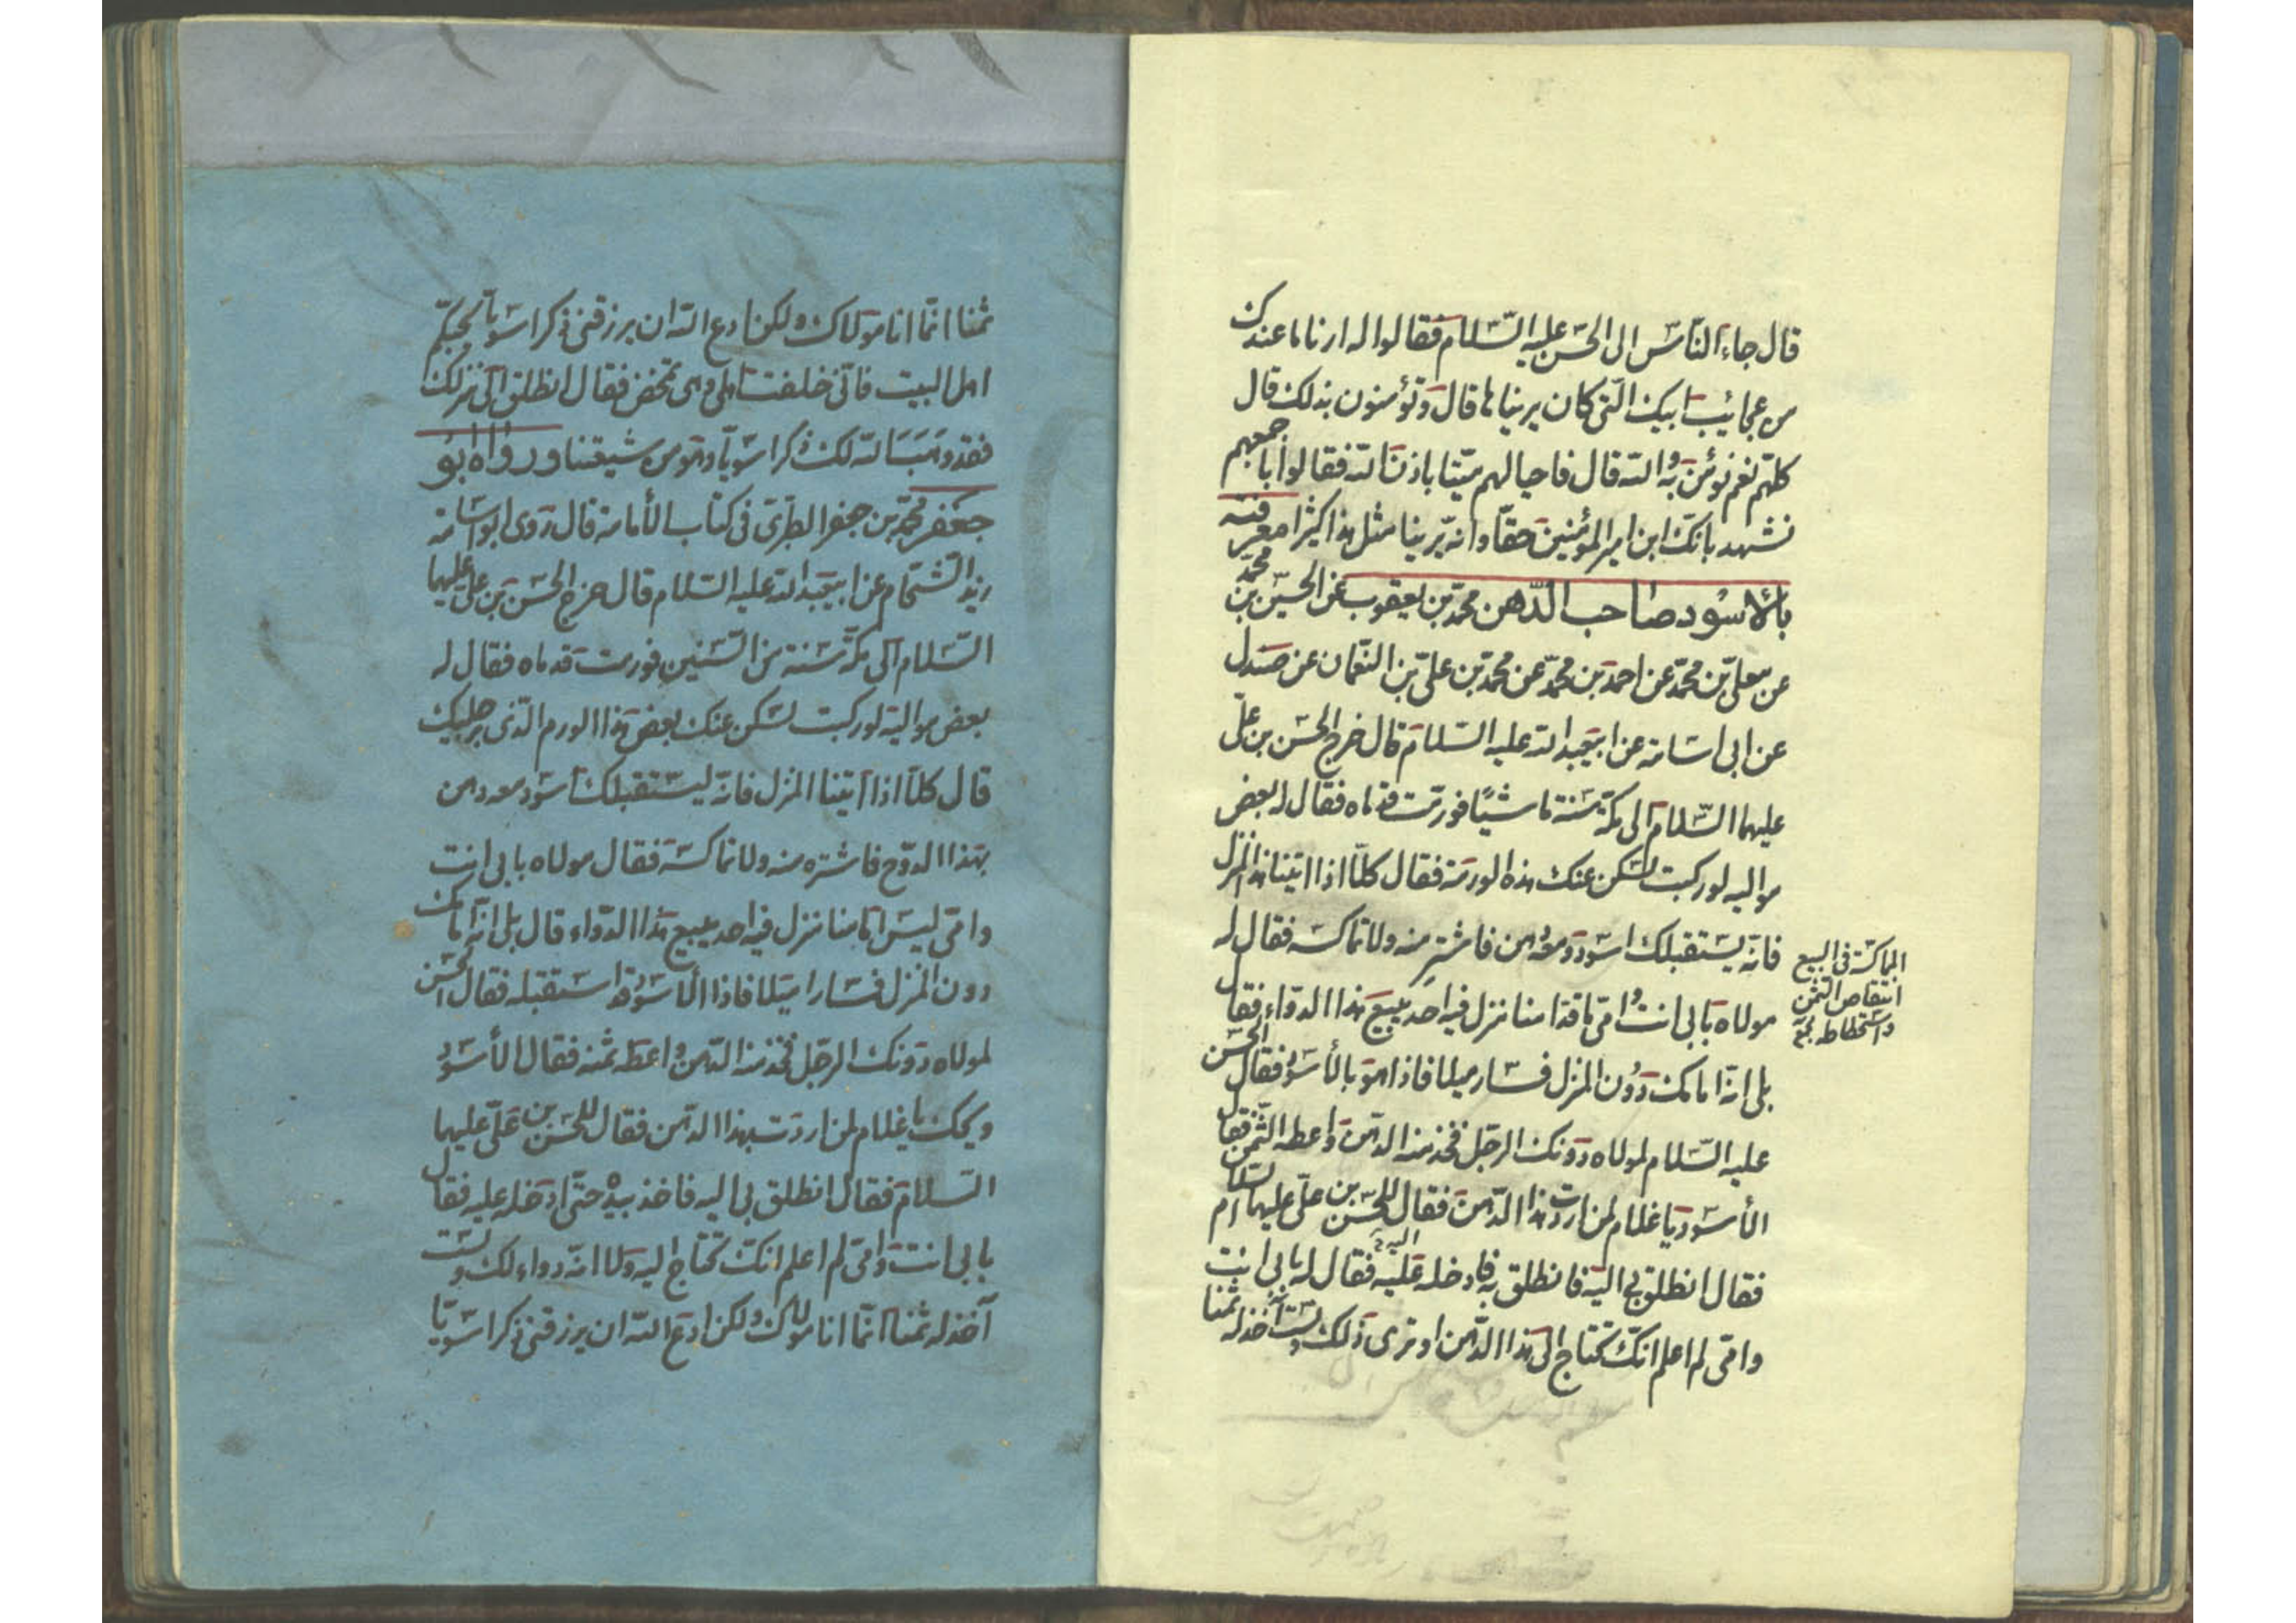 قال جاء الناس الى الحسن عليه السّلام فقالوا له ارنا ما عندك
من عجايب ابيك التى كان يريناها قال وتؤمنون بذلك قال
كلهم نعم نؤمن به والله قال فاحيا لهم ميّتا باذن الله فقالوا باجمعهم
نشهد بانّك ابن امير المؤمنين حقّا وانه يرينا مثل هذا كثيرا معرفته
بالاسود صاحب الدّهن محمّد بن يعقوب عن الحسين بن محمّد
عن معلى بن محمّد عن احمد بن محمّد عن محمّد بن على بن النعّمان عن صندل
عن ابى اسامة عن ابيعبد الله عليه السلام قال خرج الحسن بن علىّ
عليهما السّلام الى مكّة سنة ماشيًا فورمت قدماه فقال له بعض
مواليه لو ركبت لسكن عنك هذه الورمة فقال كلّا اذا اتينا هذا المنزل
فانّه يستقبلك اسود ومعه دهن فاشتر منه ولا تماكسه فقال له
مولاه بابى انت وامّى ما قدامنا منزل فيه احد يبيع هذا الدواء فقال
بلى انّه امامك دون المنزل فسار ميلا فاذا هو بالأسود فقال الحسن
عليه السّلام لمولاه دونك الرجل فخذ منه الدهن واعطه الثّمن فقال
الأسود يا غلام لمن اردت هذا الدّهن فقال للحسن بن علىّ عليهما السلام
فقال انطلق بى اليه فانطلق به فادخله عليه فقال له بابى انت
وامّى لم اعلم انّك تحتاج الى هذا الدّهن او ترى ذلك ولست آخذ له ثمنا
المماكسة فى البيع
انتقاص الثمن
واستحطاطه
ثمنا انّما انا مولاك ولكن ادع الله ان يرزقنى ذكرا سويّا يحبّكم
اهل البيت فانّى خلفت اهلى وهى تمخض فقال انطلق الى منزلك
فقد وهب الله لك ذكرا سويّا وهو من شيعتنا ورواه ابو
جعفر محمّد بن جعفر الطبرى فى كتاب الأمامة قال روى ابو اسامة
زيد الشحّام عن ابيعبد الله عليه السّلام قال خرج الحسن بن على عليهما
السّلام الى مكّة سنة من السّنين فورمت قدماه فقال له
بعض مواليه لو ركبت لسكن عنك بعض هذا الورم الّذى برجليك
قال كلّا اذا اتينا المنزل فانّه ليستقبلك اسود معه دهن
بهذا الدوّح فاشتره منه ولا تماكسه فقال مولاه بابى انت
وامّى ليس امامنا منزل فيه احد يبيع هذا الدّواء قال بلى انّه امامك
دون المنزل فسارا ميلا فاذا الأسود قد استقبله فقال الحسن
لمولاه دونك الرجل فخذ منه الدهن واعطه ثمنه فقال الأسود
ويحك يا غلام لمن اردت بهذا الدّهن فقال للحسن بن علىّ عليهما
السّلام فقال انطلق بى اليه فاخذ بيده حتّى ادخله عليه فقال
بابى انت وامّى لم اعلم انّك تحتاج اليه ولا انّه دواء لك ولست
آخذ له ثمنا انّما انا مولاك ولكن ادع الله ان يرزقنى ذكرا سويّا